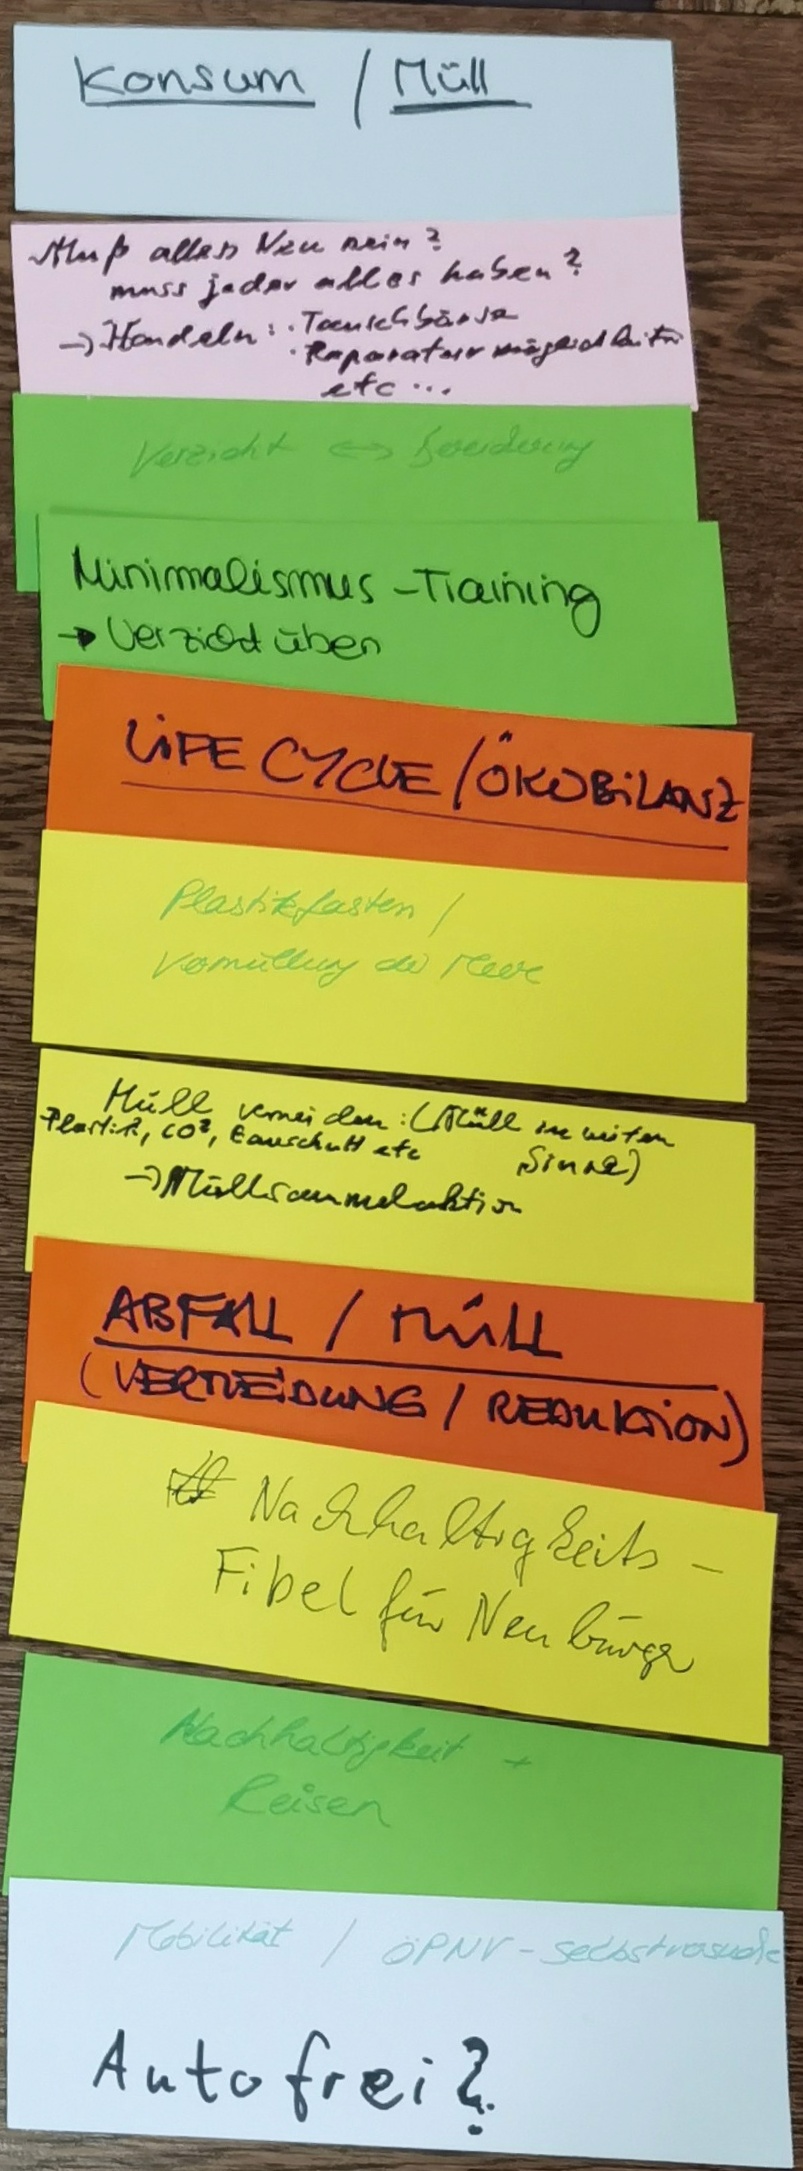 Konsum / Müll
Muß alles Neu sein?
muss jeder alles haben?
→ Handeln: · Tauschbörse
· Reparaturmöglichkeiten
etc ...
Verzicht ↔
Minimalismus - Training
→ Verzicht üben
LIFE CYCLE / ÖKOBILANZ
Plastikfasten /
Vermüllung der Meere
Müll vermeiden: (Müll im weiten
Plastik, CO², etc Sinne)
→ Müllsammelaktion
ABFALL / MÜLL
(VERMEIDUNG / REDUKTION)
Nachhaltigkeits -
Fibel für Neubürger
Nachhaltigkeit +
Reisen
Mobilität / ÖPNV - Selbstversuche
Autofrei?